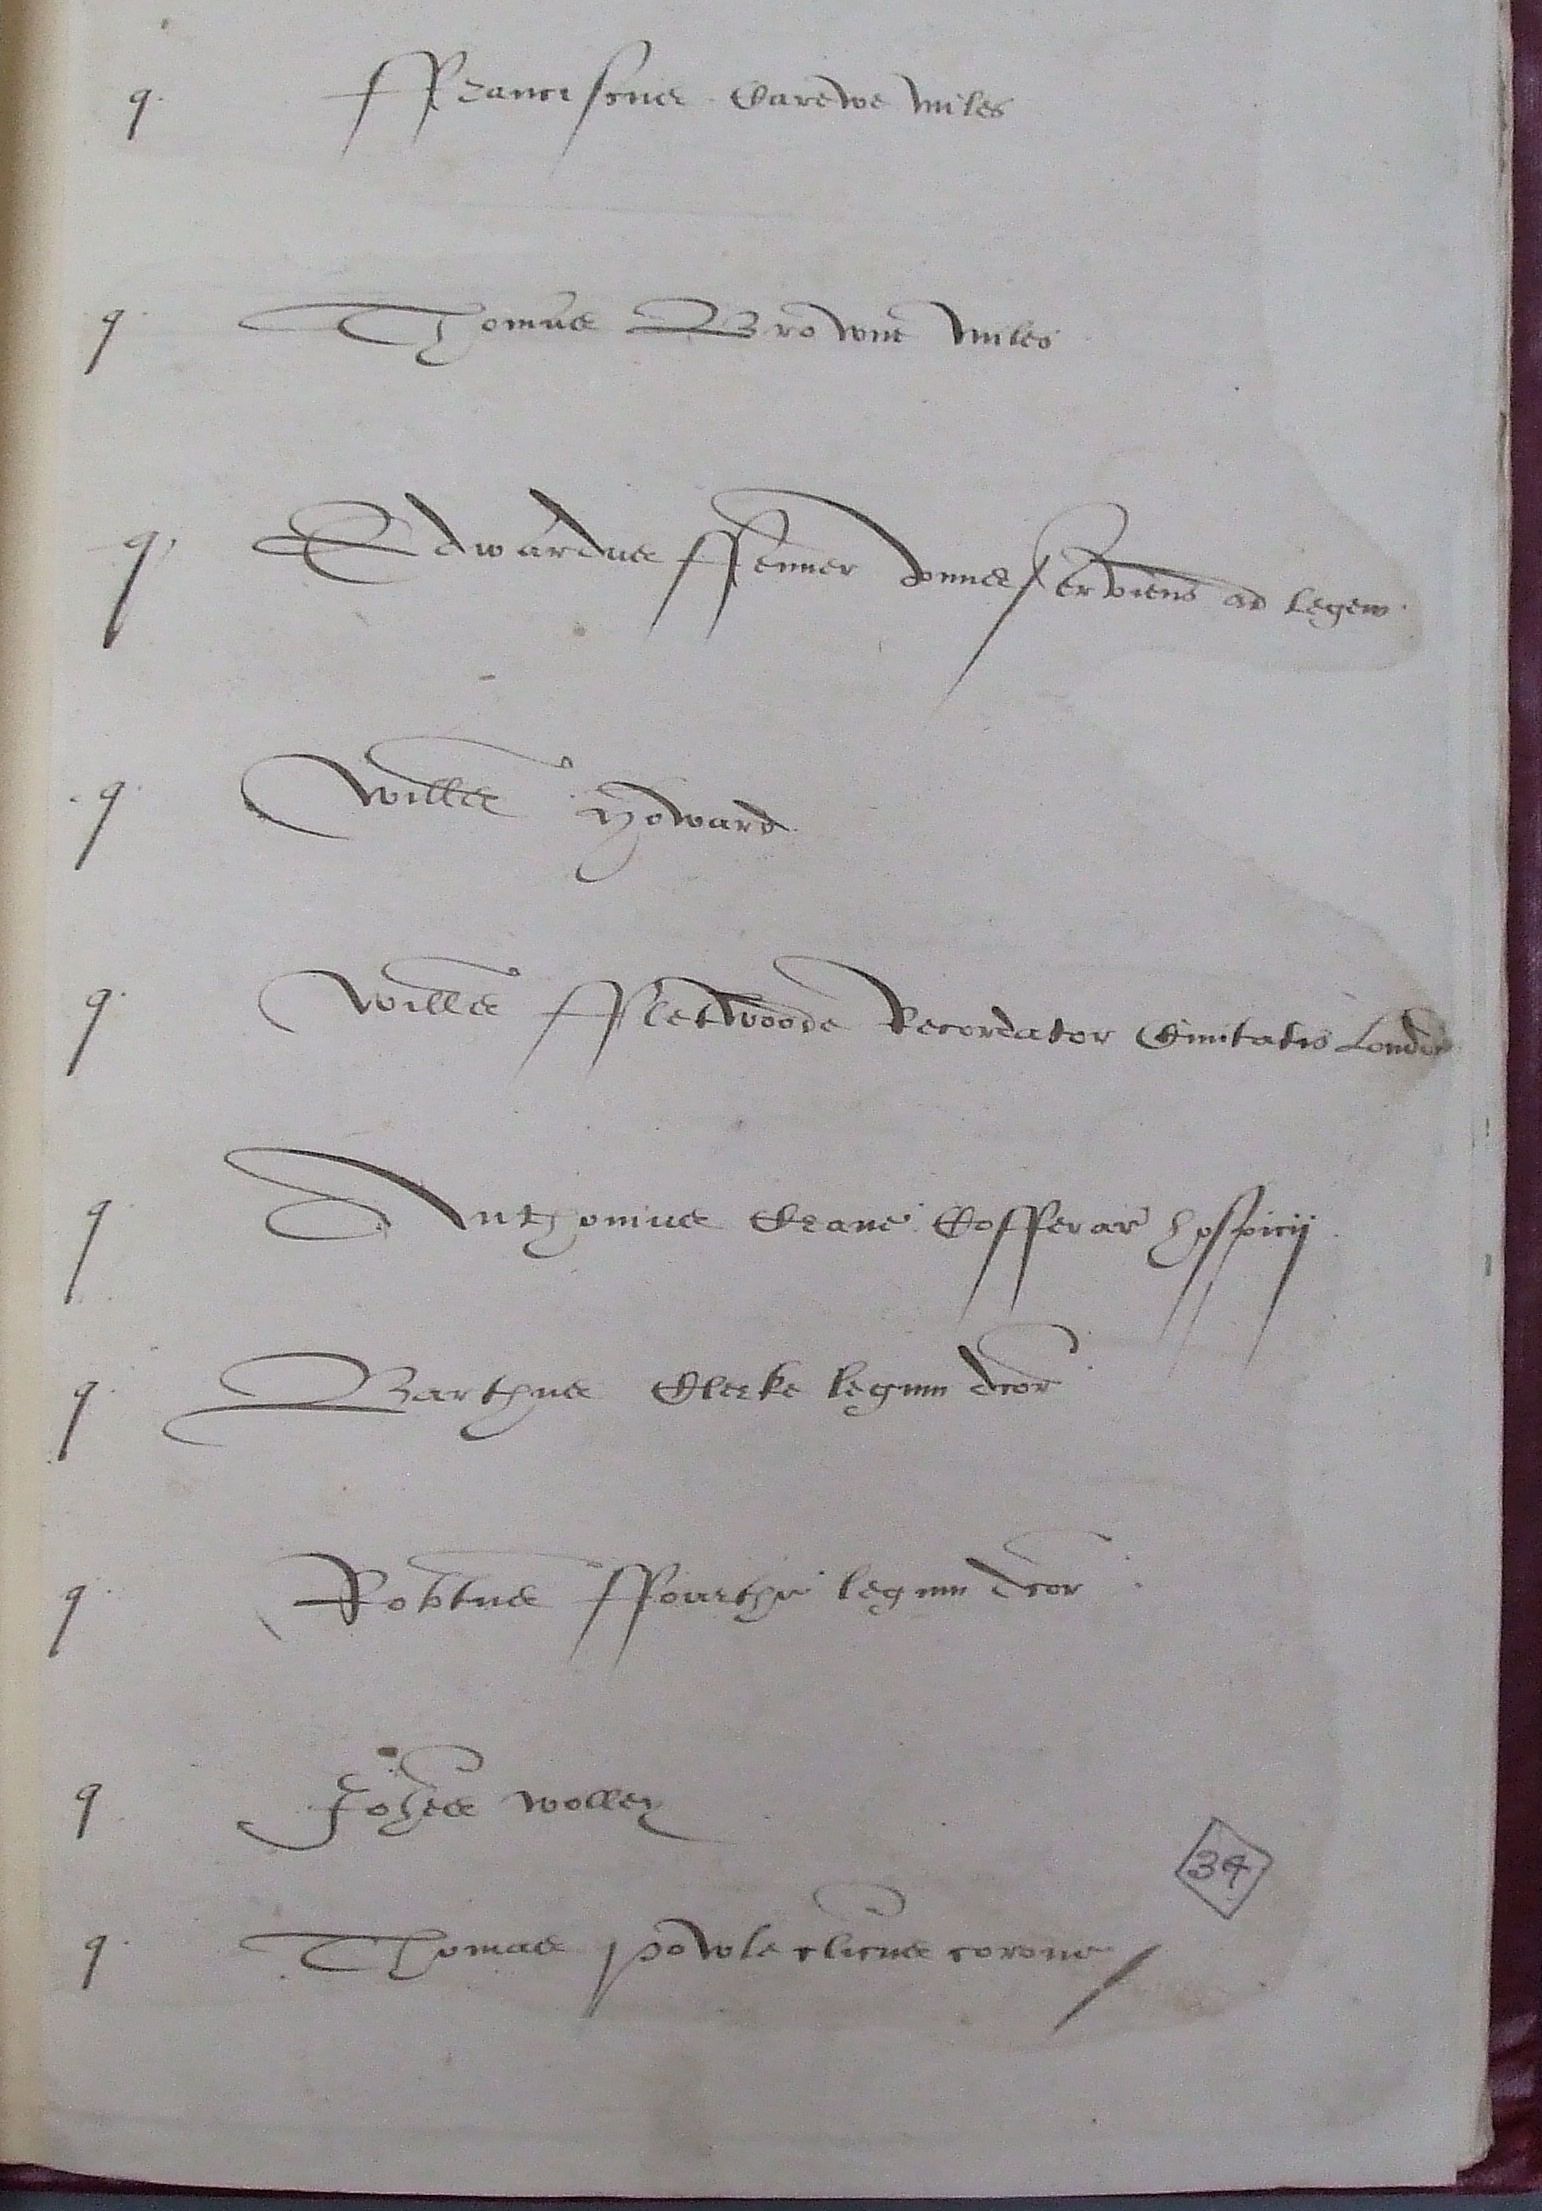 q. ffranciscus Carewe miles
q. Thomas Browne miles
q. Edwardus ffenner vnus serviens ad legem
q. Willus Howard
q. Willus ffletwoode Recordator Civitatis London
q. Anthonius Crane Cofferar hospicij
q. Barthus Clerke legum dcor
q. Robtus fforthe legum dcor
q Johes Wolley
q. Thomas Powle clicus corone
34